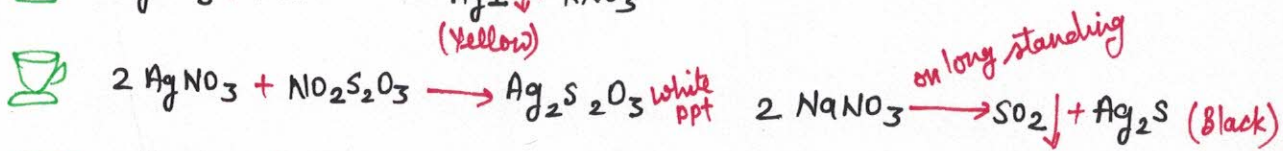 AgI↓ KNO3
(Yellow)
2 AgNO3 + NO2S2O3 → Ag2S2O3 white ppt 2 NaNO3 on long standing → SO2↓ + Ag2S (Black)